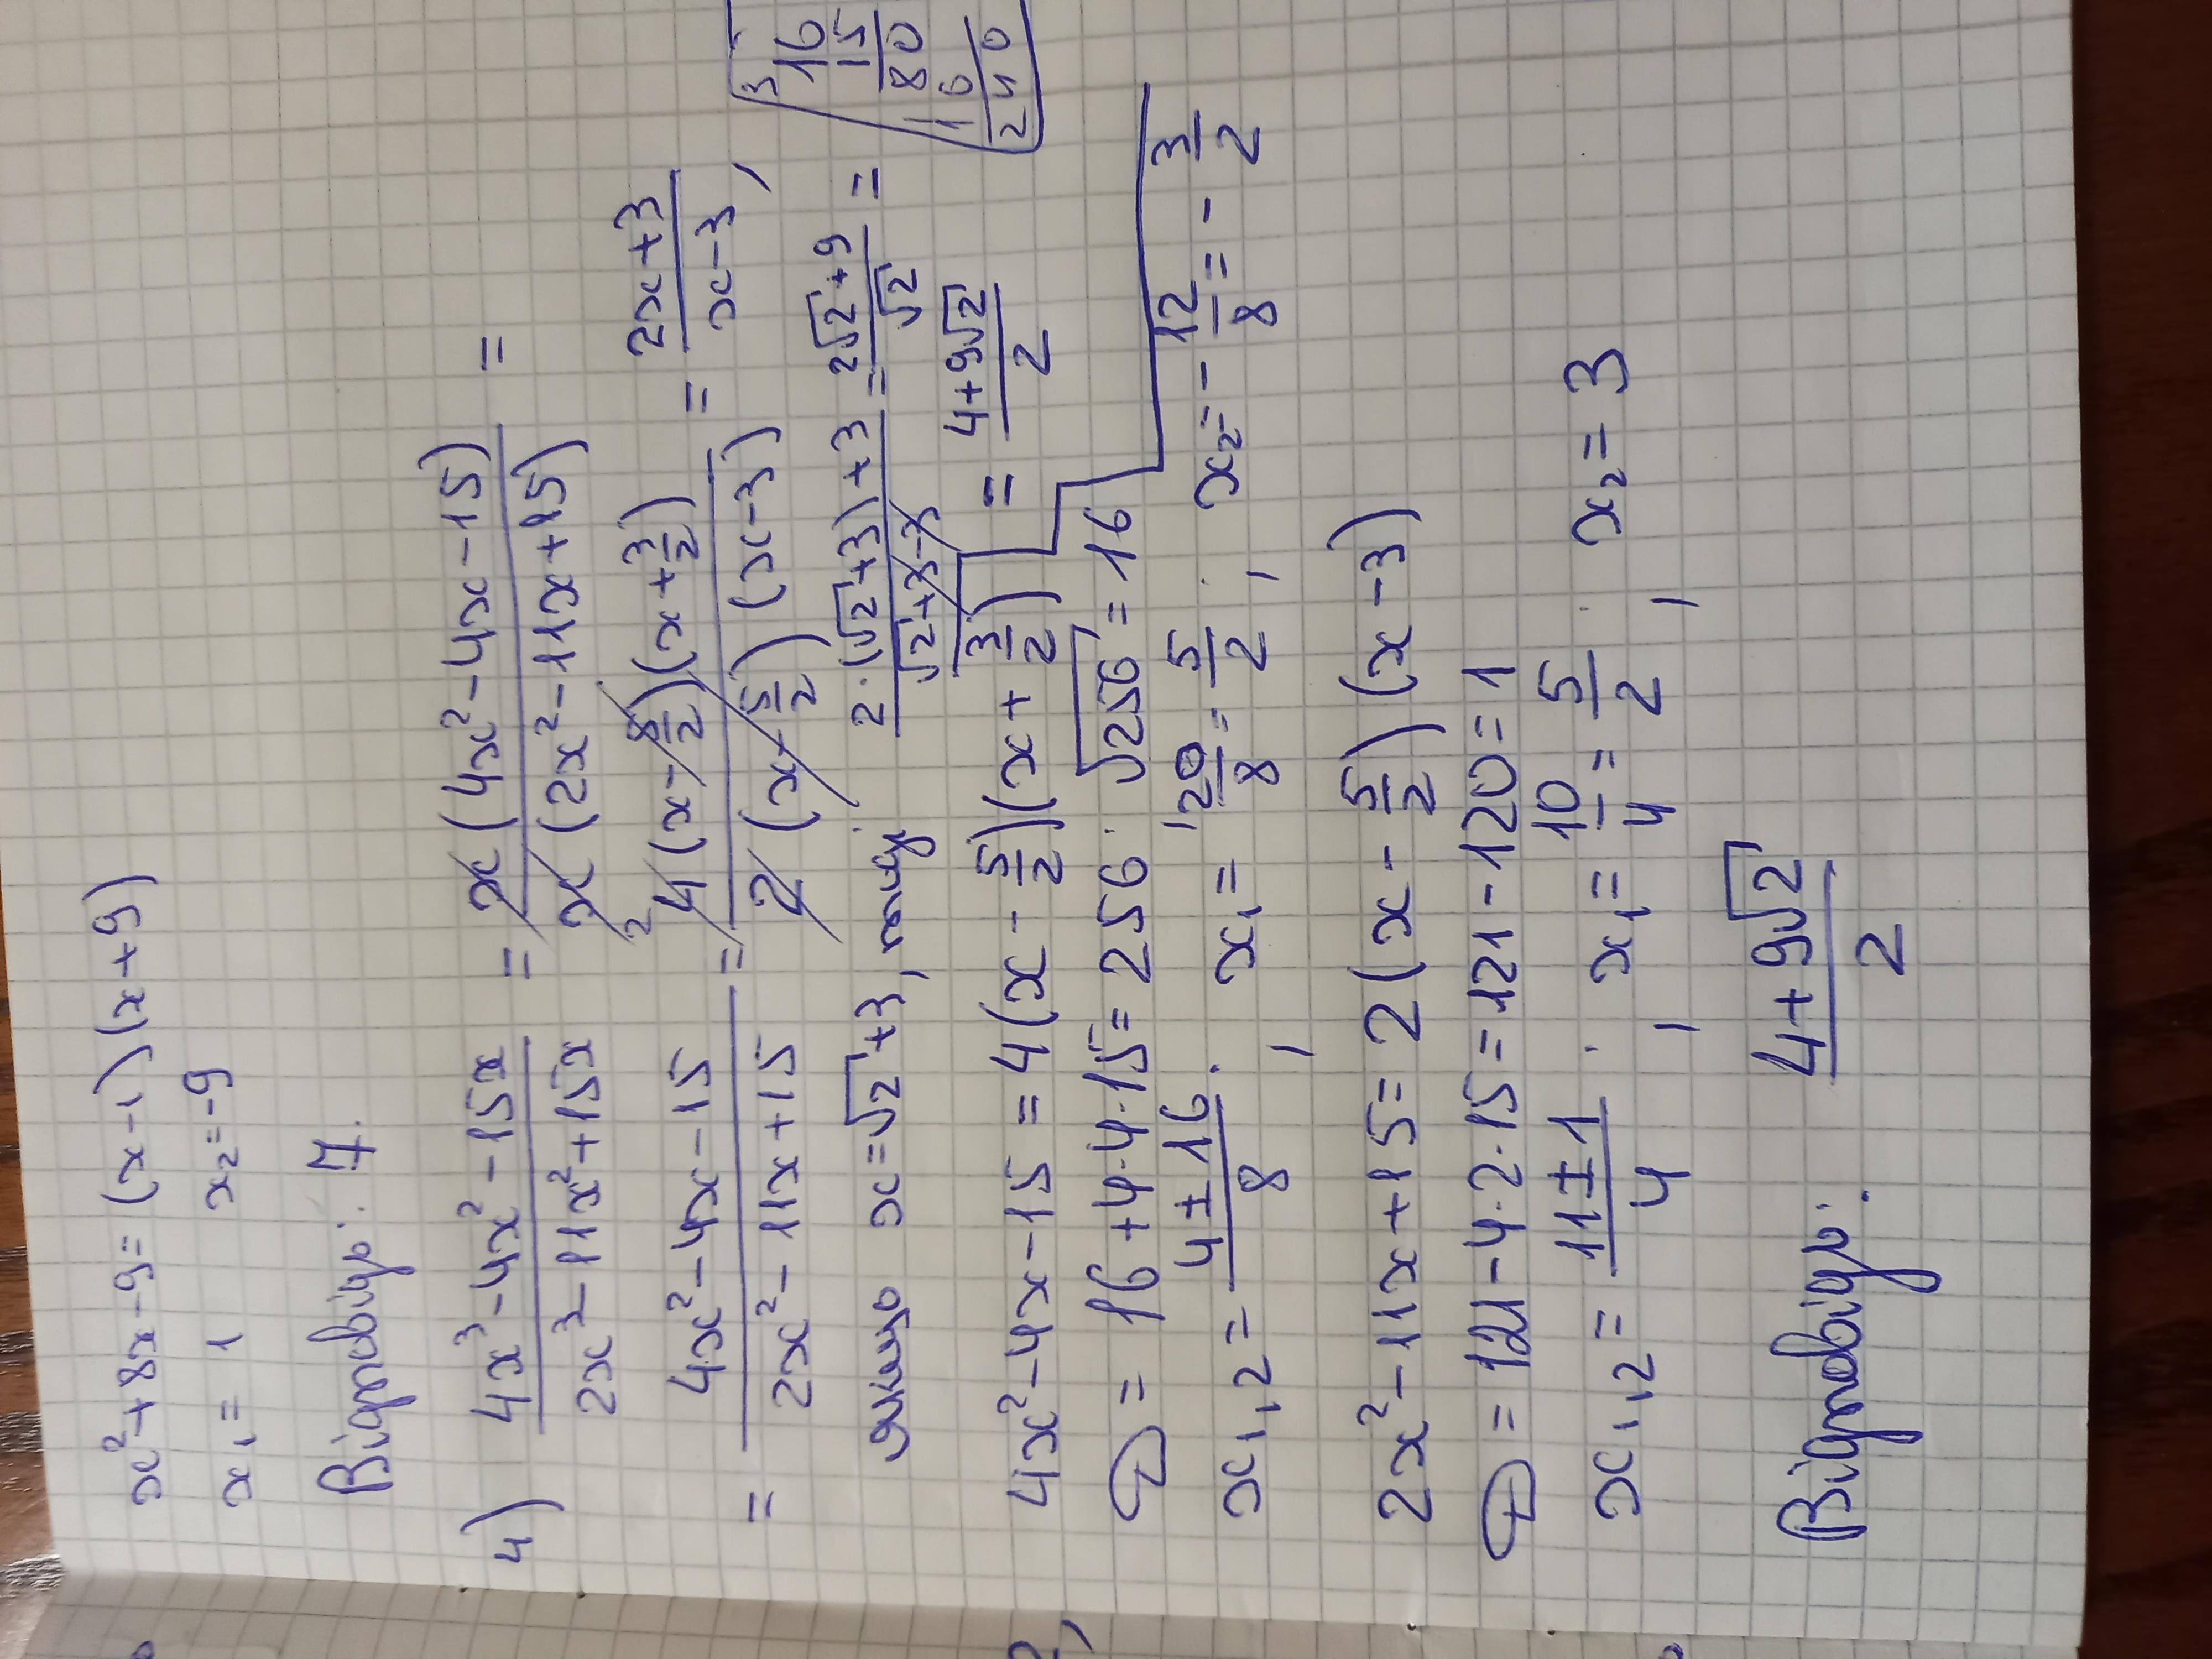 x² + 8x - 9 = (x - 1)(x + 9)
x₁ = 1    x₂ = -9
Відповідь: 7.
4) (4x³ - 4x² - 15x)/(2x³ - 11x² + 15x) = x(4x² - 4x - 15)/x(2x² - 11x + 15) =
= (4x² - 4x - 15)/(2x² - 11x + 15) = ²4(x - 5/2)(x + 3/2)/2(x - 5/2)(x - 3) = (2x + 3)/(x - 3),
якщо x = √2 + 3, тоді (2·(√2 + 3) + 3)/(√2 + 3 - 3) = (2√2 + 9)/√2 =
= (4 + 9√2)/2
³16
15
80
16
240
4x² - 4x - 15 = 4(x - 5/2)(x + 3/2)
D = 16 + 4·4·15 = 256; √256 = 16
x₁,₂ = (4 ± 16)/8; x₁ = 20/8 = 5/2; x₂ = -12/8 = -3/2
2x² - 11x + 15 = 2(x - 5/2)(x - 3)
D = 121 - 4·2·15 = 121 - 120 = 1
x₁,₂ = (11 ± 1)/4; x₁ = 10/4 = 5/2; x₂ = 3
Відповідь: (4 + 9√2)/2